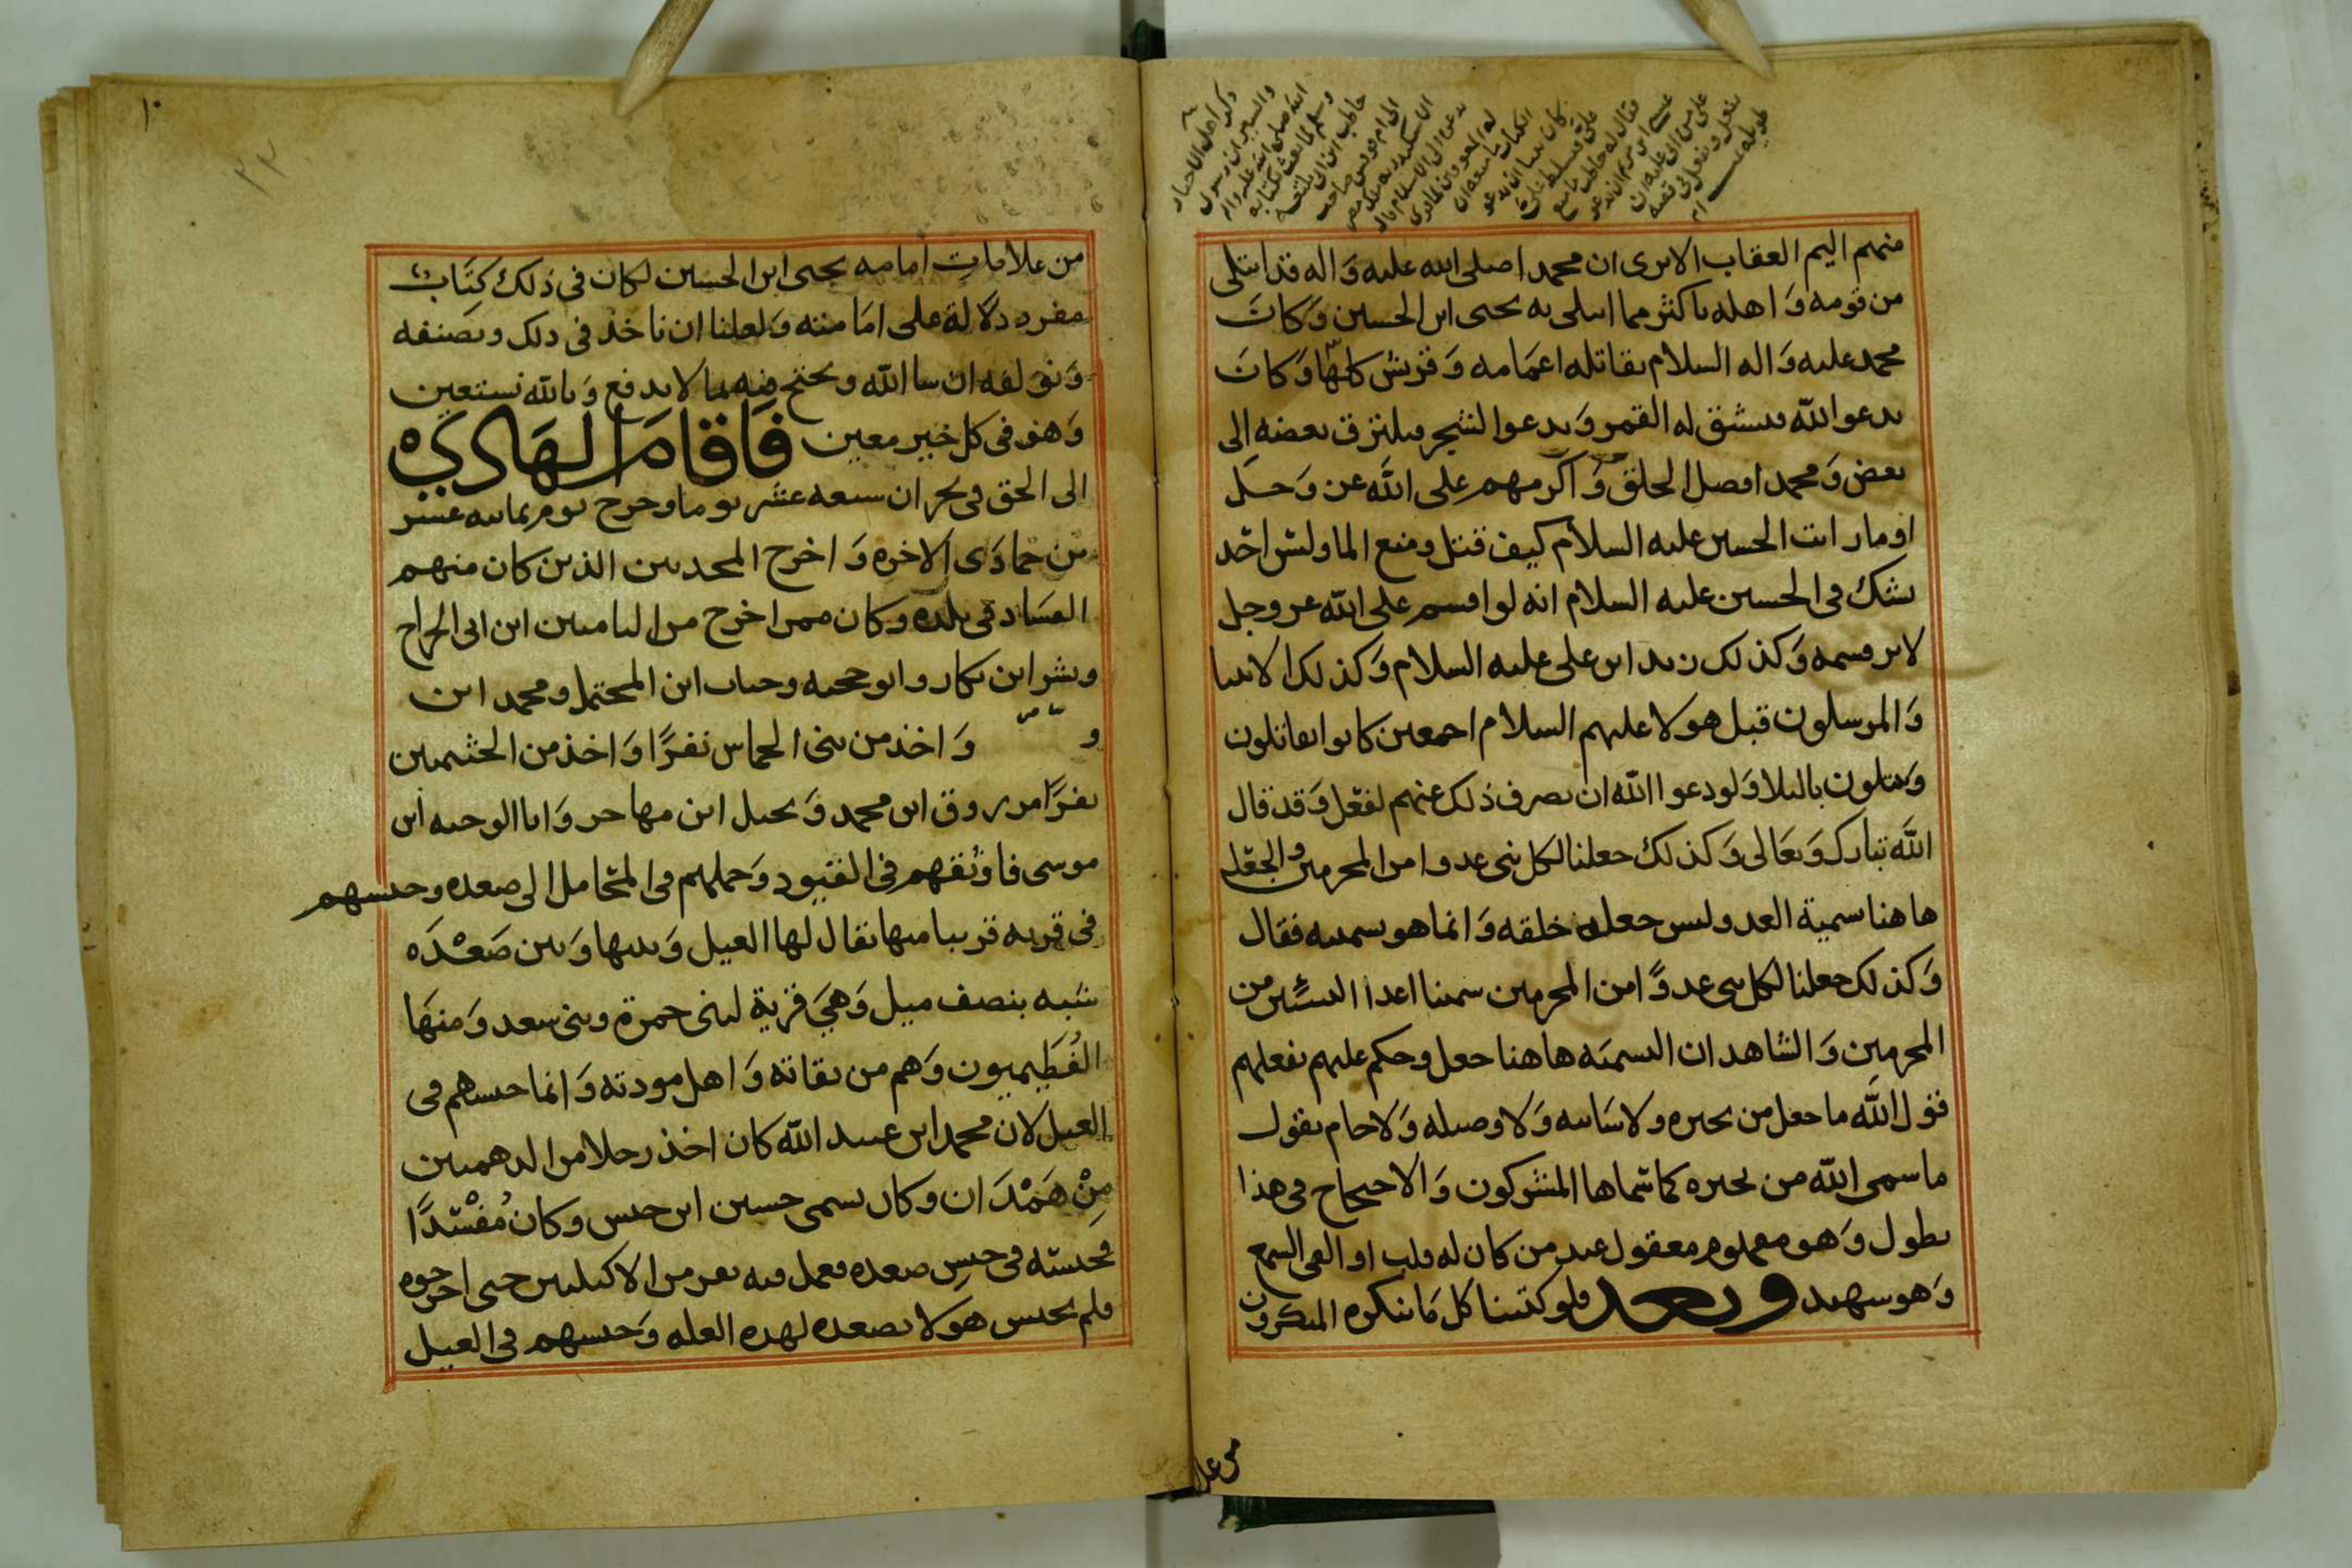 منهم اليم العقاب الا ترى ان محمدا صلى الله عليه وَاله قد ابتلى
من قومه وَاهله باكثر مما ابتلى به يحيى ابن الحسين وَكانَ
محمد عليه وَاله السلام يقاتله اعمَامه وَقريش كلهّا وَكانَ
يدعوا الله فينشق له القمر وَيدعوا الشجر فيلتزق بعضه الى
بعض وَمحمد افضل الخلق وَاكرمهم على الله عز وَجل
اوما رايت الحسين عليه السلام كيف قتل ومنع الما وليس احَد
يشك في الحسين عليه السلام انه لو اقسم على الله عز وجل
لابر قسمه وَكذلك زيد ابن على عليه السلام وَكذلك الانبيا
وَالمرسلون قبل هولا عليهم السلام اجمعين كانوا يقاتلون
وَيبتلون بالبلا وَلو دعوا الله ان يصرف ذلك عنهم لفعَل وَقد قال
الله تبارك وَتعَالى وَكذلك جعلنا لكل نبى عدوا من المجرمين وَالجعَل
هاهنا سمية العدو وليس جعله خلقه وَانما هو تسميته فقال
وَكذلك جعلنا لكل نبى عدوًّا من المجرمين سمينا اعدا النبيّين من
المجرمين وَالشاهد ان التسميَه هاهنا جعل وحكم عليهم بفعلهم
قول الله ما جعل من بحيره ولا سَائبه وَلا وصيله وَلا حام يقول
ما سمى الله من بحيره كما سَّماها المشركون وَالاحتجاج في هذا
يطول وَهو معلوم معقول عند من كان له قلب او القى السمع
وَهو شهيد وبعد فلو كتبنا كل مَا ينكره المنكرون
من علا
من علامات امامه يحيى ابن الحسين لكان في ذلك كتَابٌ
مفرد دلَالة على امَامته وَلعلنا ان ناخذ في ذلك ونصنفه
وَنؤلفه ان شا الله ونحتج فيه بما لا يدفع وَبالله نستعين
وَهو في كل خير معين فَاقامَ الهَادي
الى الحق في نجران سبعه عشر يوما وخرج يوم ثمانيه عشر
من جمادَى الاخره وَاخرج المحدثين الذين كان منهم
الفسَاد في بلده وكان ممن اخرج من اليامين ابن ابى الجراح
وبشر ابن بكار وابو جحيه وحباب ابن المحتمل ومحمد ابن
و وَاخذ من بنى الحماس نفرًا وَاخذ من الخثميين
نفرًا مرزوق ابن محمد وَنحيل ابن مهاجر وَابا الوجيه ابن
موسى فاوثقهم في القيود وَحملهم في المحَامل الى صعده وحبسهم
في قريه قريبا منها يقال لها الغيل وَبينها وَبين صَعْدَه
شبه بنصف ميل وَهيَ قرية لبنى حمزة وبنى سعد وَمنهَا
الفُطَيميون وَهم من ثقاته وَاهل مودته وَانما حبسهم في
الغيل لان محمد ابن عبيد الله كان اخذ رجلا من الدهميين
مِنْ هَمْدَان وكان يسمى حسين ابن حبس وكان مُفْسدًا
فحبسته في حبسِ صعده فعمل فيه نفر من الاكيليين حتى اخرجوه
فلم يحبس هولا بصعده لهذه العله وَحبسهم في الغيل